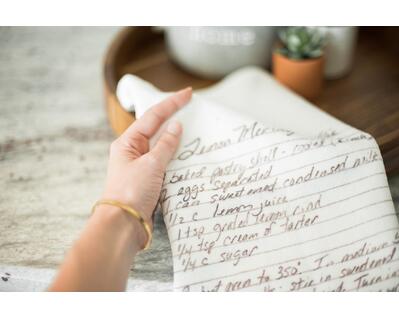 Home
Lemon Meringue
baked pastry shell - cooled
eggs separated
1 can sweetened condensed milk
1/2 c lemon juice
1 tsp grated lemon rind
1/4 tsp cream of tarter
1/4 c sugar
oven to 350° In medium
stir in sweetened
Turn in